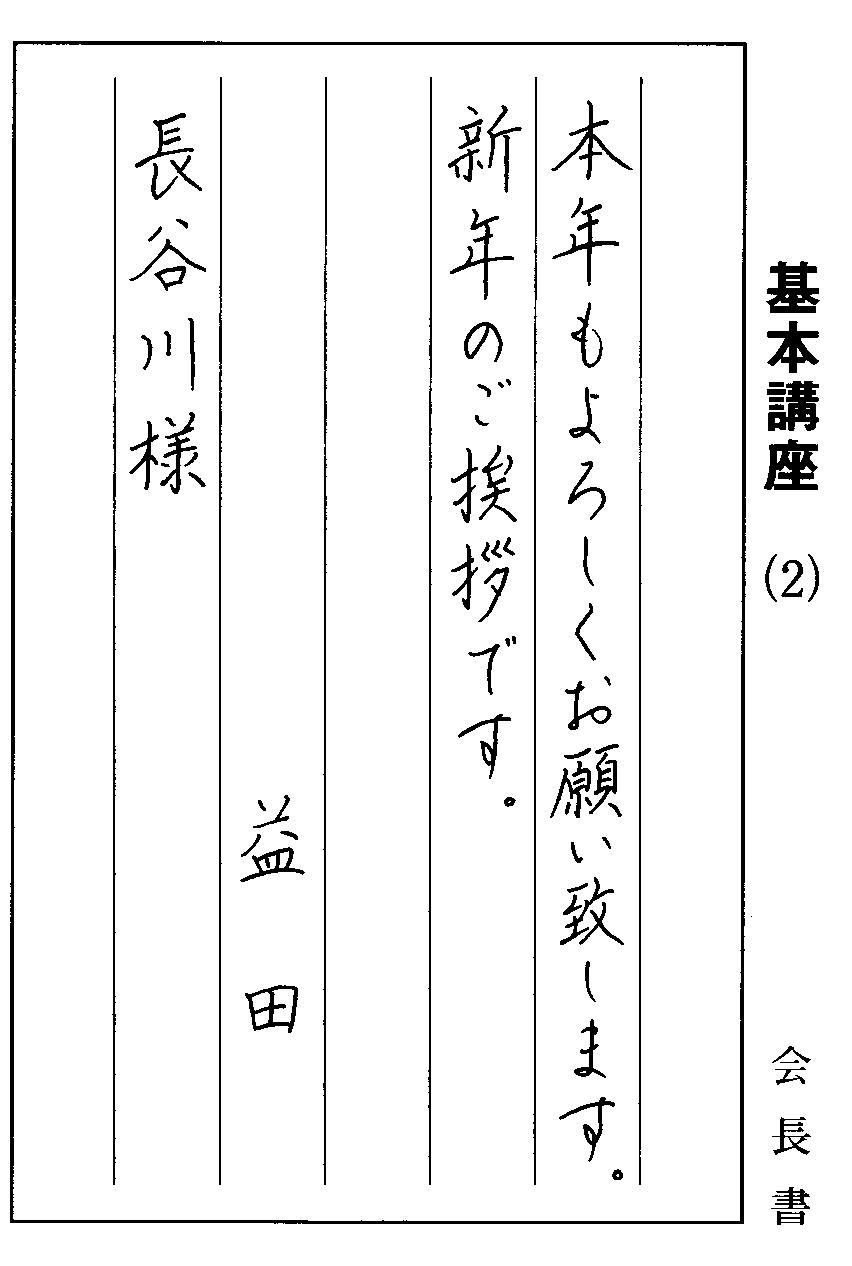 基本講座 (2)
会長書
本年もよろしくお願い致します。
新年のご挨拶です。
益田
長谷川様